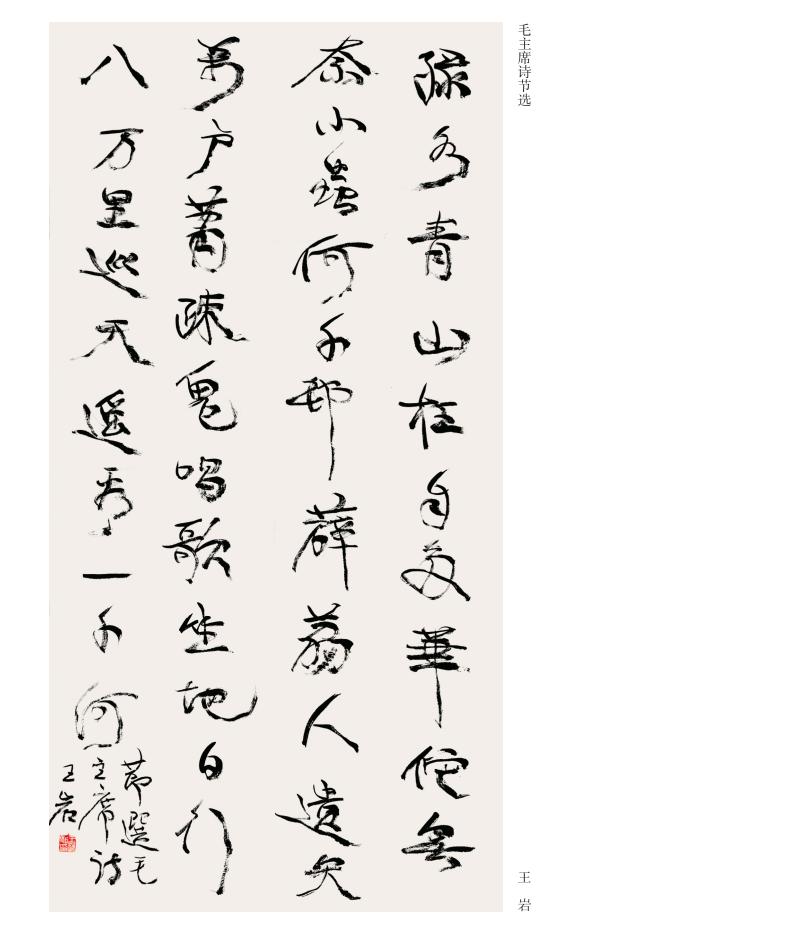 毛主席诗节选
王岩
绿水青山枉自多華佗無
奈小蟲何千邨薜荔人遺矢
萬户蕭疎鬼唱歌坐地日行
八万里巡天遥看一千河
節選毛
主席诗
王岩